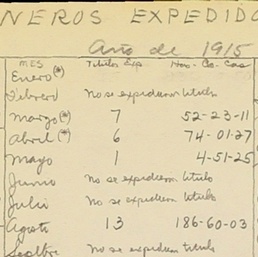 NEROS EXPEDIDO
Año de 1915
MES Titulos Exp. Hec-As-Cas
Enero(*)
Febrero No se expidieron titulos
Marzo(*) 7 52-23-11
Abril(*) 6 74-01-27
Mayo 1 4-51-25
Junio No se expidieron titulo
Julio No se expidieron titulos
Agosto 13 186-60-03
No se expidieron titulo